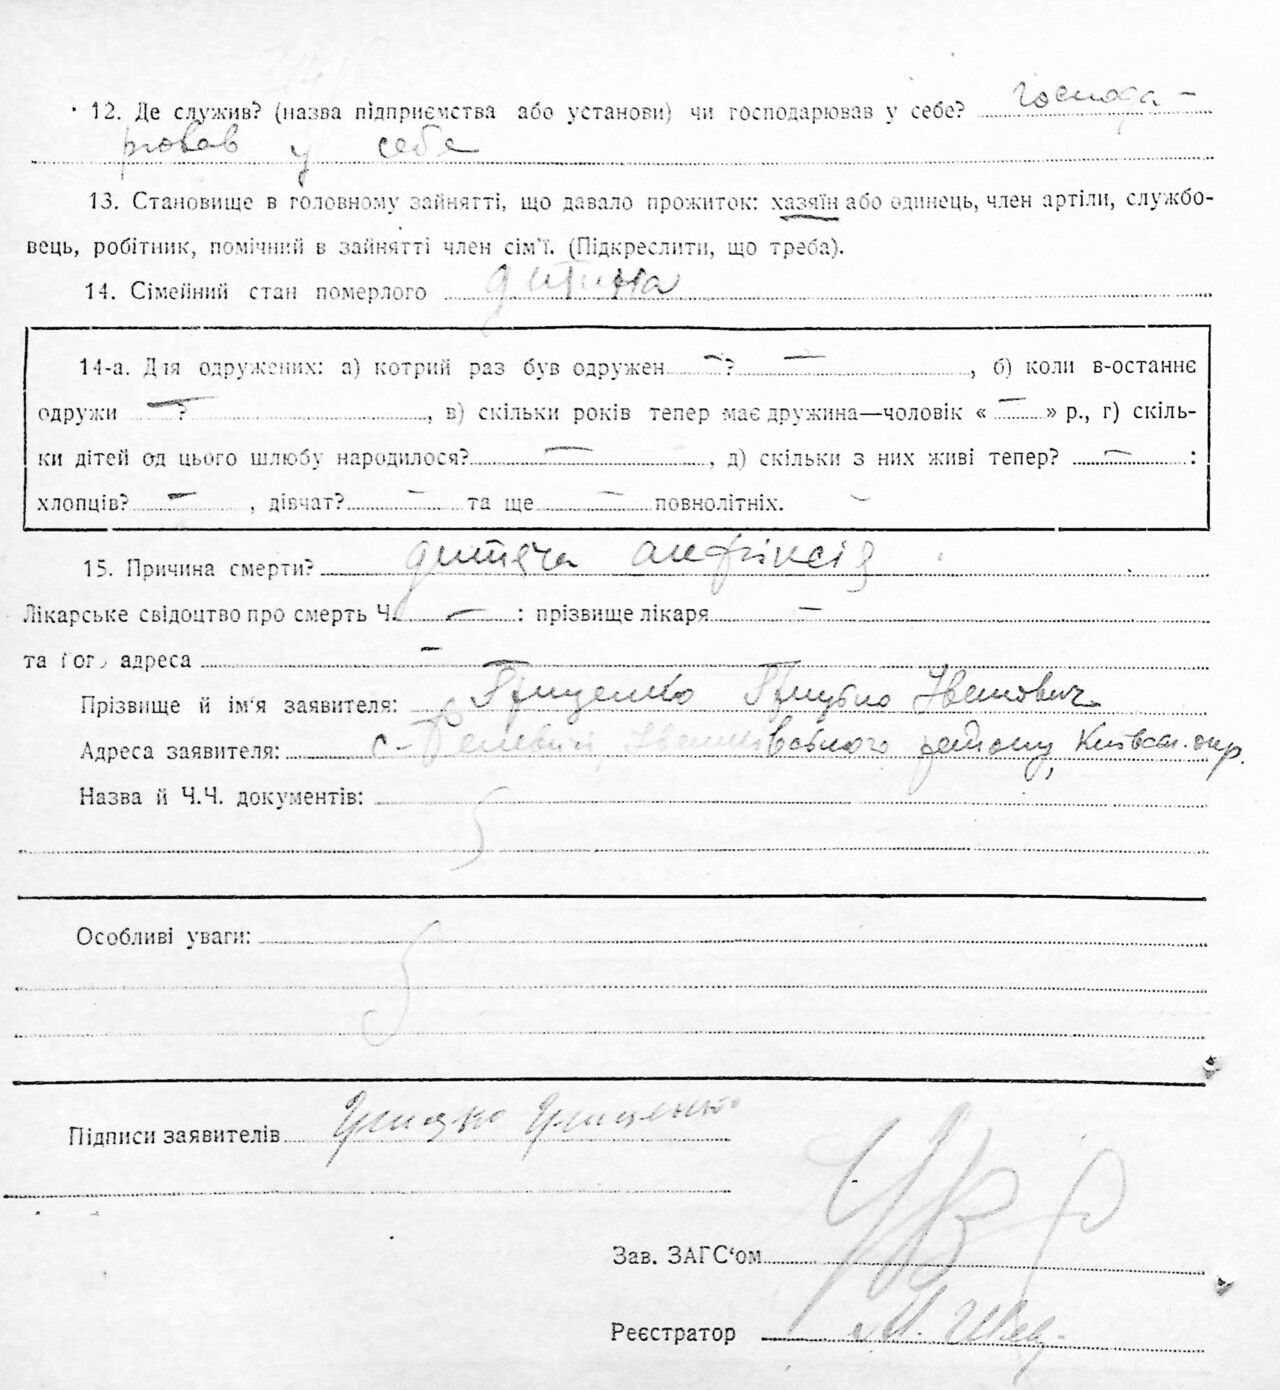 12. Де служив? (назва підприємства або установи) чи господарював у себе? господа-
рював у себе
13. Становище в головному зайнятті, що давало прожиток: хазяїн або одинець, член артіли, службо-
вець, робітник, помічний в зайнятті член сім'ї. (Підкреслити, що треба).
14. Сімейний стан померлого дитина
14-а. Для одружених: а) котрий раз був одружен —? —, б) коли в-останнє
одружи —?, в) скільки років тепер має дружина—чоловік « — » р., г) скіль-
ки дітей од цього шлюбу народилося? —, д) скільки з них живі тепер? — :
хлопців? —, дівчат? — та ще — повнолітніх.
15. Причина смерти? дитяча
Лікарське свідоцтво про смерть Ч. — : прізвище лікаря —
та його адреса —
Прізвище й ім'я заявителя: Грищенко Грицько Іванович
Адреса заявителя: с. району, Київськ. окр.
Назва й Ч.Ч. документів:
Особливі уваги:
Підписи заявителів Грицко Грищенко
Зав. ЗАГС'ом
Реєстратор